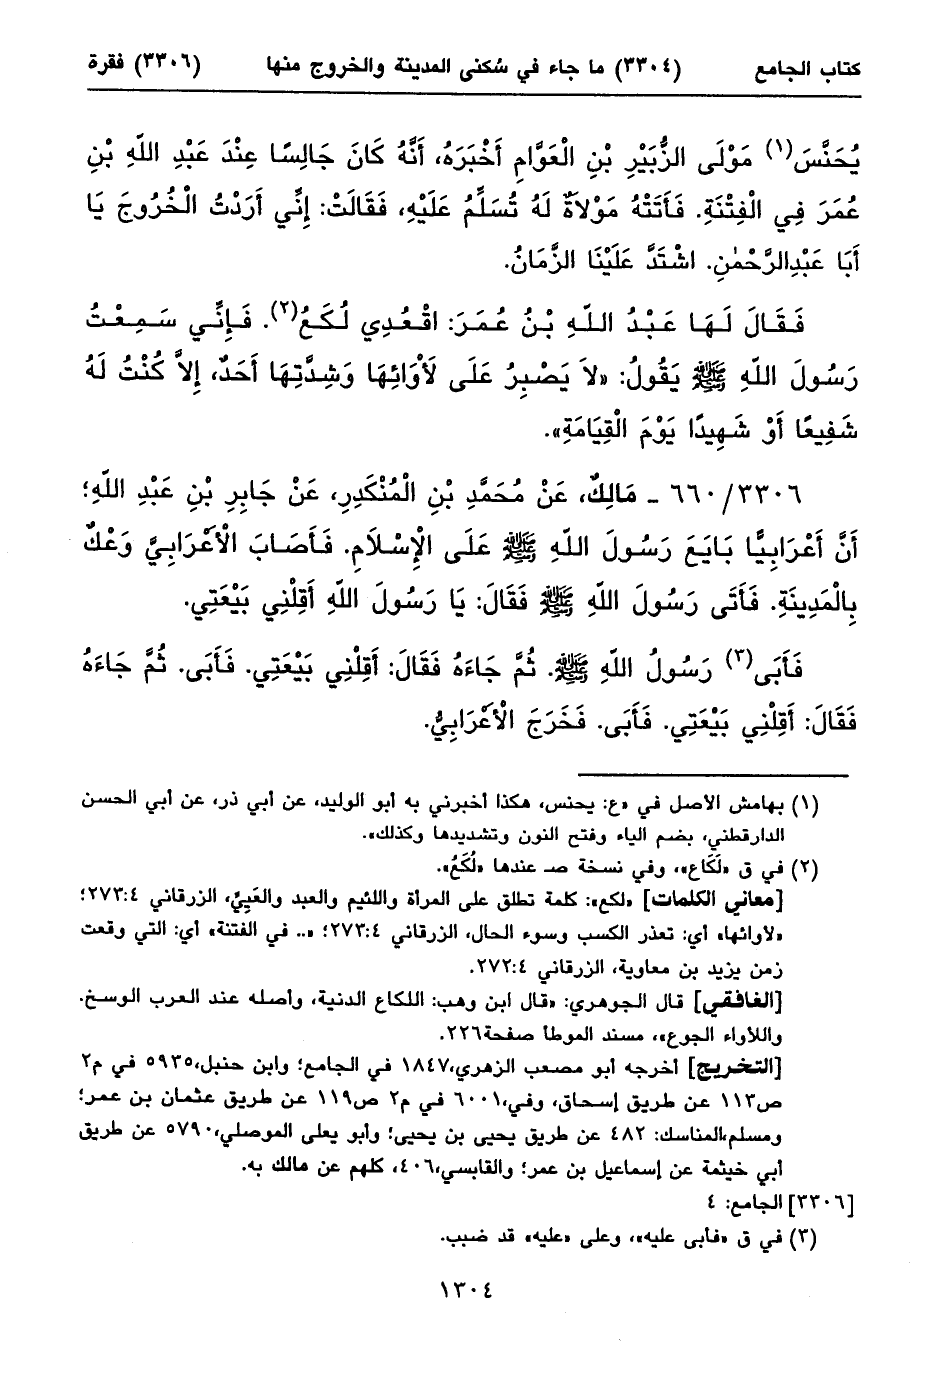 كتاب الجامع (٣٣٠٤) ما جاء في سُكنى المدينة والخروج منها (٣٣٠٦) فقرة
يُحَنَّسَ(١) مَوْلَى الزُّبَيْرِ بْنِ الْعَوَّامِ أَخْبَرَهُ، أَنَّهُ كَانَ جَالِسًا عِنْدَ عَبْدِ اللَّهِ بْنِ
عُمَرَ فِي الْفِتْنَةِ. فَأَتَتْهُ مَوْلاَةٌ لَهُ تُسَلِّمُ عَلَيْهِ، فَقَالَتْ: إِنِّي أَرَدْتُ الْخُرُوجَ يَا
أَبَا عَبْدِالرَّحْمٰنِ. اشْتَدَّ عَلَيْنَا الزَّمَانُ.
فَقَالَ لَهَا عَبْدُ اللَّهِ بْنُ عُمَرَ: اقْعُدِي لُكَعُ(٢). فَإِنِّي سَمِعْتُ
رَسُولَ اللَّهِ ﷺ يَقُولُ: «لاَ يَصْبِرُ عَلَى لَأْوَائِهَا وَشِدَّتِهَا أَحَدٌ، إِلاَّ كُنْتُ لَهُ
شَفِيعًا أَوْ شَهِيدًا يَوْمَ الْقِيَامَةِ».
٦٦٠/٣٣٠٦ - مَالِكٌ، عَنْ مُحَمَّدِ بْنِ الْمُنْكَدِرِ، عَنْ جَابِرِ بْنِ عَبْدِ اللَّهِ؛
أَنَّ أَعْرَابِيًّا بَايَعَ رَسُولَ اللَّهِ ﷺ عَلَى الْإِسْلَامِ. فَأَصَابَ الْأَعْرَابِيَّ وَعْكٌ
بِالْمَدِينَةِ. فَأَتَى رَسُولَ اللَّهِ ﷺ فَقَالَ: يَا رَسُولَ اللَّهِ أَقِلْنِي بَيْعَتِي.
فَأَبَى(٣) رَسُولُ اللَّهِ ﷺ. ثُمَّ جَاءَهُ فَقَالَ: أَقِلْنِي بَيْعَتِي. فَأَبَى. ثُمَّ جَاءَهُ
فَقَالَ: أَقِلْنِي بَيْعَتِي. فَأَبَى. فَخَرَجَ الْأَعْرَابِيُّ.
(١) بهامش الأصل في «ع: يحنس، هكذا أخبرني به أبو الوليد، عن أبي ذر، عن أبي الحسن
الدارقطني، بضم الياء وفتح النون وتشديدها وكذلك».
(٢) في ق «لَكَاع»، وفي نسخة صـ عندها «لُكَعُ».
[معاني الكلمات] «لكع»: كلمة تطلق على المرأة واللئيم والعبد والغَبِيُّ، الزرقاني ٢٧٣:٤؛
«لأوائها» أي: تعذر الكسب وسوء الحال، الزرقاني ٢٧٣:٤؛ «.. في الفتنة» أي: التي وقعت
زمن يزيد بن معاوية، الزرقاني ٢٧٢:٤.
[الغافقي] قال الجوهري: «قال ابن وهب: اللكاع الدنية، وأصله عند العرب الوسخ.
واللأواء الجوع»، مسند الموطأ صفحة٢٢٦.
[التخريج] أخرجه أبو مصعب الزهري،١٨٤٧ في الجامع؛ وابن حنبل،٥٩٣٥ في م٢
ص١١٣ عن طريق إسحاق، وفي،٦٠٠١ في م٢ ص١١٩ عن طريق عثمان بن عمر؛
ومسلم،المناسك: ٤٨٢ عن طريق يحيى بن يحيى؛ وأبو يعلى الموصلي،٥٧٩٠ عن طريق
أبي خيثمة عن إسماعيل بن عمر؛ والقابسي،٤٠٦، كلهم عن مالك به.
[٣٣٠٦] الجامع: ٤
(٣) في ق «فأبى عليه»، وعلى «عليه» قد ضبب.
١٣٠٤